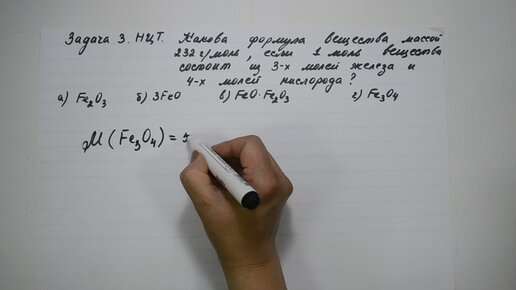 Задача 3. НЦТ. Какова формула вещества массой
232 г/моль, если 1 моль вещества
состоит из 3-х молей железа и
4-х молей кислорода?
а) Fe₂O₃ б) 3FeO в) FeO·Fe₂O₃ г) Fe₃O₄
M(Fe₃O₄) = 5